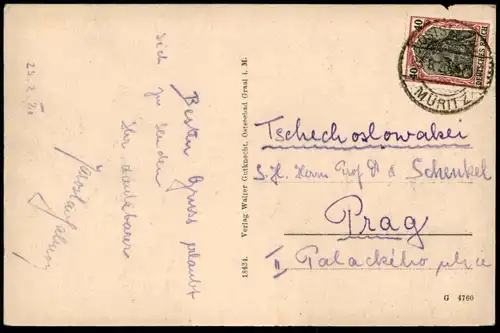 25. 2. 21
Besten Gruss erlaubt
sich zu senden
Ihr dankbarer
18434. Verlag Walter Gutknecht, Ostseebad Graal i. M.
40 40
DEUTSCHES REICH
MÜRITZ
Tschechoslowakei
S. H. Herrn Prof Dr Schenkel
Prag
II Palackého ulice
G 4760